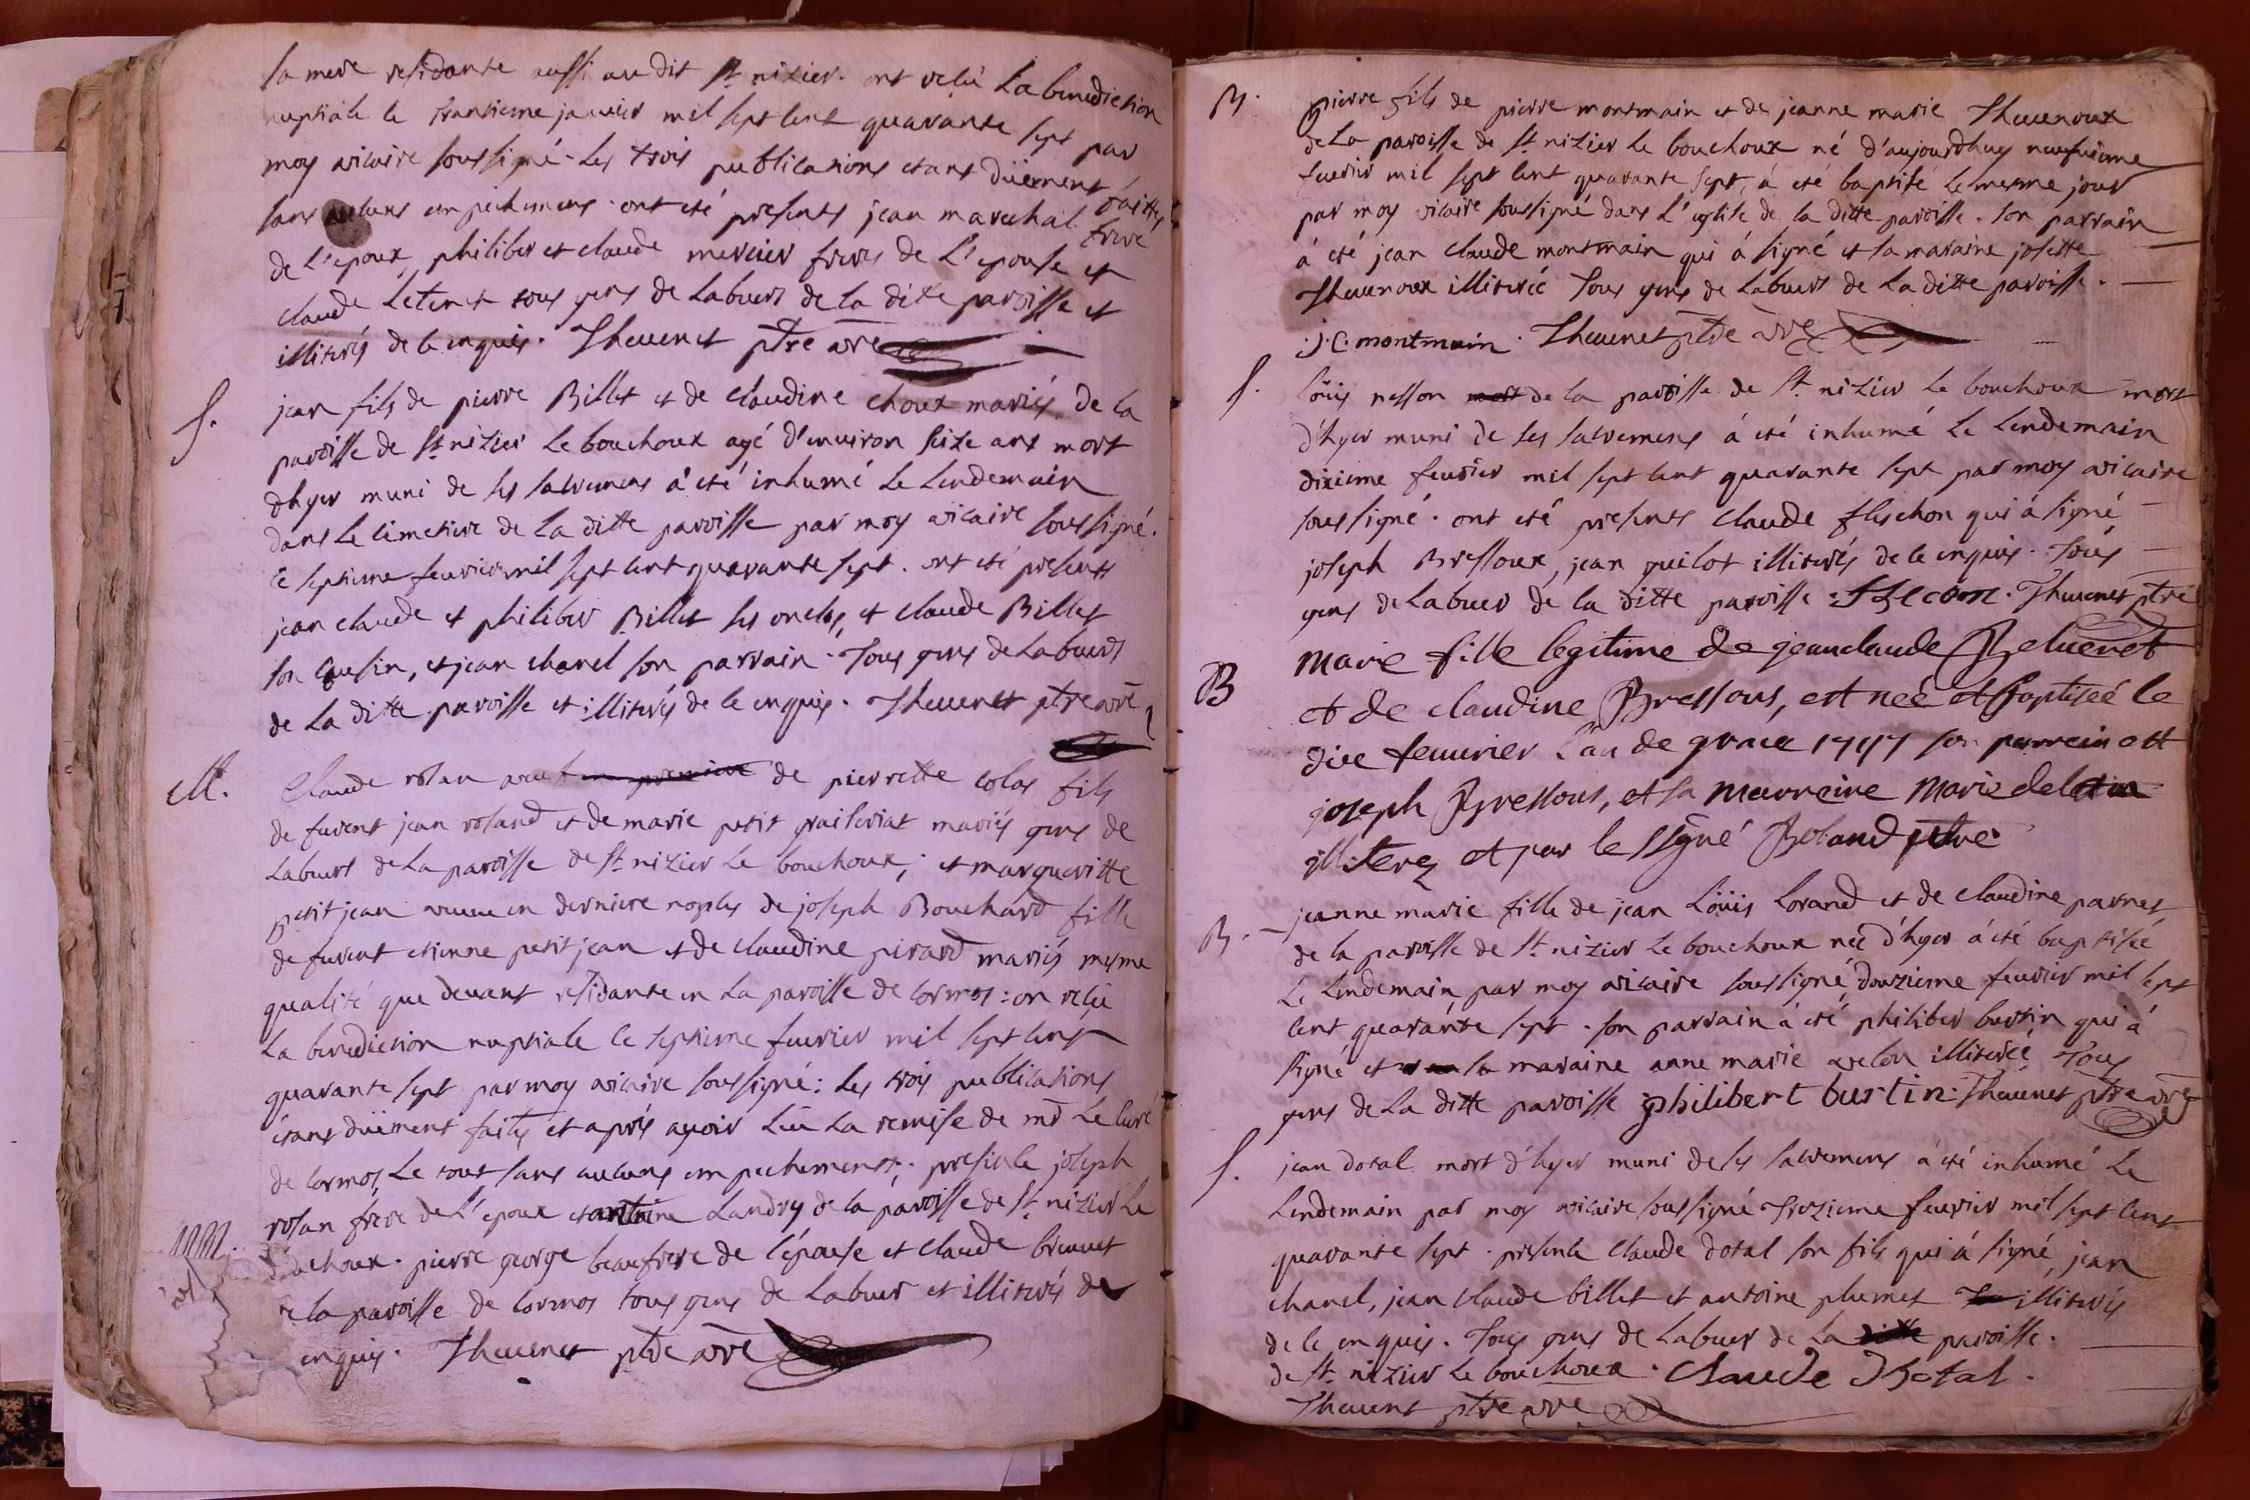 sa mere residante aussi au dit st nizier. ont reçu la benediction
nuptiale le trantieme janvier mil sept cent quarante sept par
moy vicaire soussigné. Les trois publications etans düement faittes
sans aucuns empechemens. ont eté presents jean marechal frere
de l'epoux, philiber et claude mercier freres de l'epouse et
claude Letenet tous gens de labeurs de la ditte paroisse et
illiterés de ce enquis. Theuenet ptre vre
S. jean fils de pierre Billet et de claudine choux mariés de la
paroisse de st nizier le bouchoux agé d'environ seize ans mort
d'hyer muni de ses sacremens á eté inhumé le lendemain
dans le cimetiere de la ditte paroisse par moy vicaire soussigné.
le septieme feurier mil sept cent quarante sept. ont eté presents
jean claude et philiber Billet ses oncles, et claude Billet
son cousin, et jean chanel son parrain. Tous gens de labeurs
de la ditte paroisse et illiterés de ce enquis. Theuenet ptre vre
M. Claude rolan veuf en premiere de pierrette colas fils
de furent jean roland et de marie petit mariés gens de
labeurs de la paroisse de st nizier le bouchoux; et margueritte
petit jean veuue en derniere nopces de joseph Bouchard fille
de furent etienne petit jean et de claudine perard mariés mesme
qualité que deuant residante en la paroisse de cormos: on reçu
la benediction nuptiale le septieme feurier mil sept cent
quarante sept par moy vicaire soussigné: les trois publications
étans düement faites et aprés avoir eu la remise de mr le curé
de cormos, le tout sans aucuns empechements; presence joseph
rolan frere de l'epoux et antoine Landry de la paroisse de st nizier le
bouchoux. pierre george beaufrere de l'épouse et claude brunet
de la paroisse de cormos tous gens de labeur et illiterés de
enquis. Theuenet ptre vre
B. pierre fils de pierre montmain et de jeanne marie Theuenoux
de la paroisse de st nizier le bouchoux né d'aujourdhuy neufuieme
feurier mil sept cent quarante sept, á eté baptisé le mesme jour
par moy vicaire soussigné dans l'eglise de la ditte paroisse. son parrain
á eté jean claude montmain qui á signé et sa maraine josette
Theuenoux illiterée Tous gens de labeurs de la ditte paroisse.
j. c. montmain. Theuenet ptre vre
S. Loüis nesson mort de la paroisse de st nizier le bouchoux mort
d'hyer muni de ses sacremens á eté inhumé le lendemain
dixieme feurier mil sept cent quarante sept par moy vicaire
soussigné. ont eté presents claude flechon qui á signé
joseph Bressoux, jean guilot illiterés de ce enquis. Tous
gens de labeur de la ditte paroisse. Theuenet ptre
B Marie fille legitime de jeanclaude Beluenet
et de claudine Bressous, est neé et baptiseé le
dix feuurier l'an de grace 1747 son parrein est
joseph Bressous, et sa marreine Marie deletin
illiterez et par le ssigné Roland ptre
B. jeanne marie fille de jean Loüis Lorand et de claudine parnet
de la paroisse de st nizier le bouchoux née d'hyer á eté baptisée
le lendemain par moy vicaire soussigné, douzieme feurier mil sept
cent quarante sept. son parrain á eté philiber burtin qui á
signé et sa maraine anne marie illiterée Tous
gens de la ditte paroisse philibert burtin. Theuenet ptre vre
S. jean dotal mort d'hyer muni de ses sacremens á eté inhumé le
lendemain par moy vicaire soussigné Trezieme feurier mil sept cent
quarante sept. presence claude dotal son fils qui á signé, jean
chanel, jean claude billet et antoine plumet illiterés
de ce enquis. Tous gens de labeur de la ditte paroisse.
de st nizier le bouchoux. Claude Dotal.
Theuent ptre vre